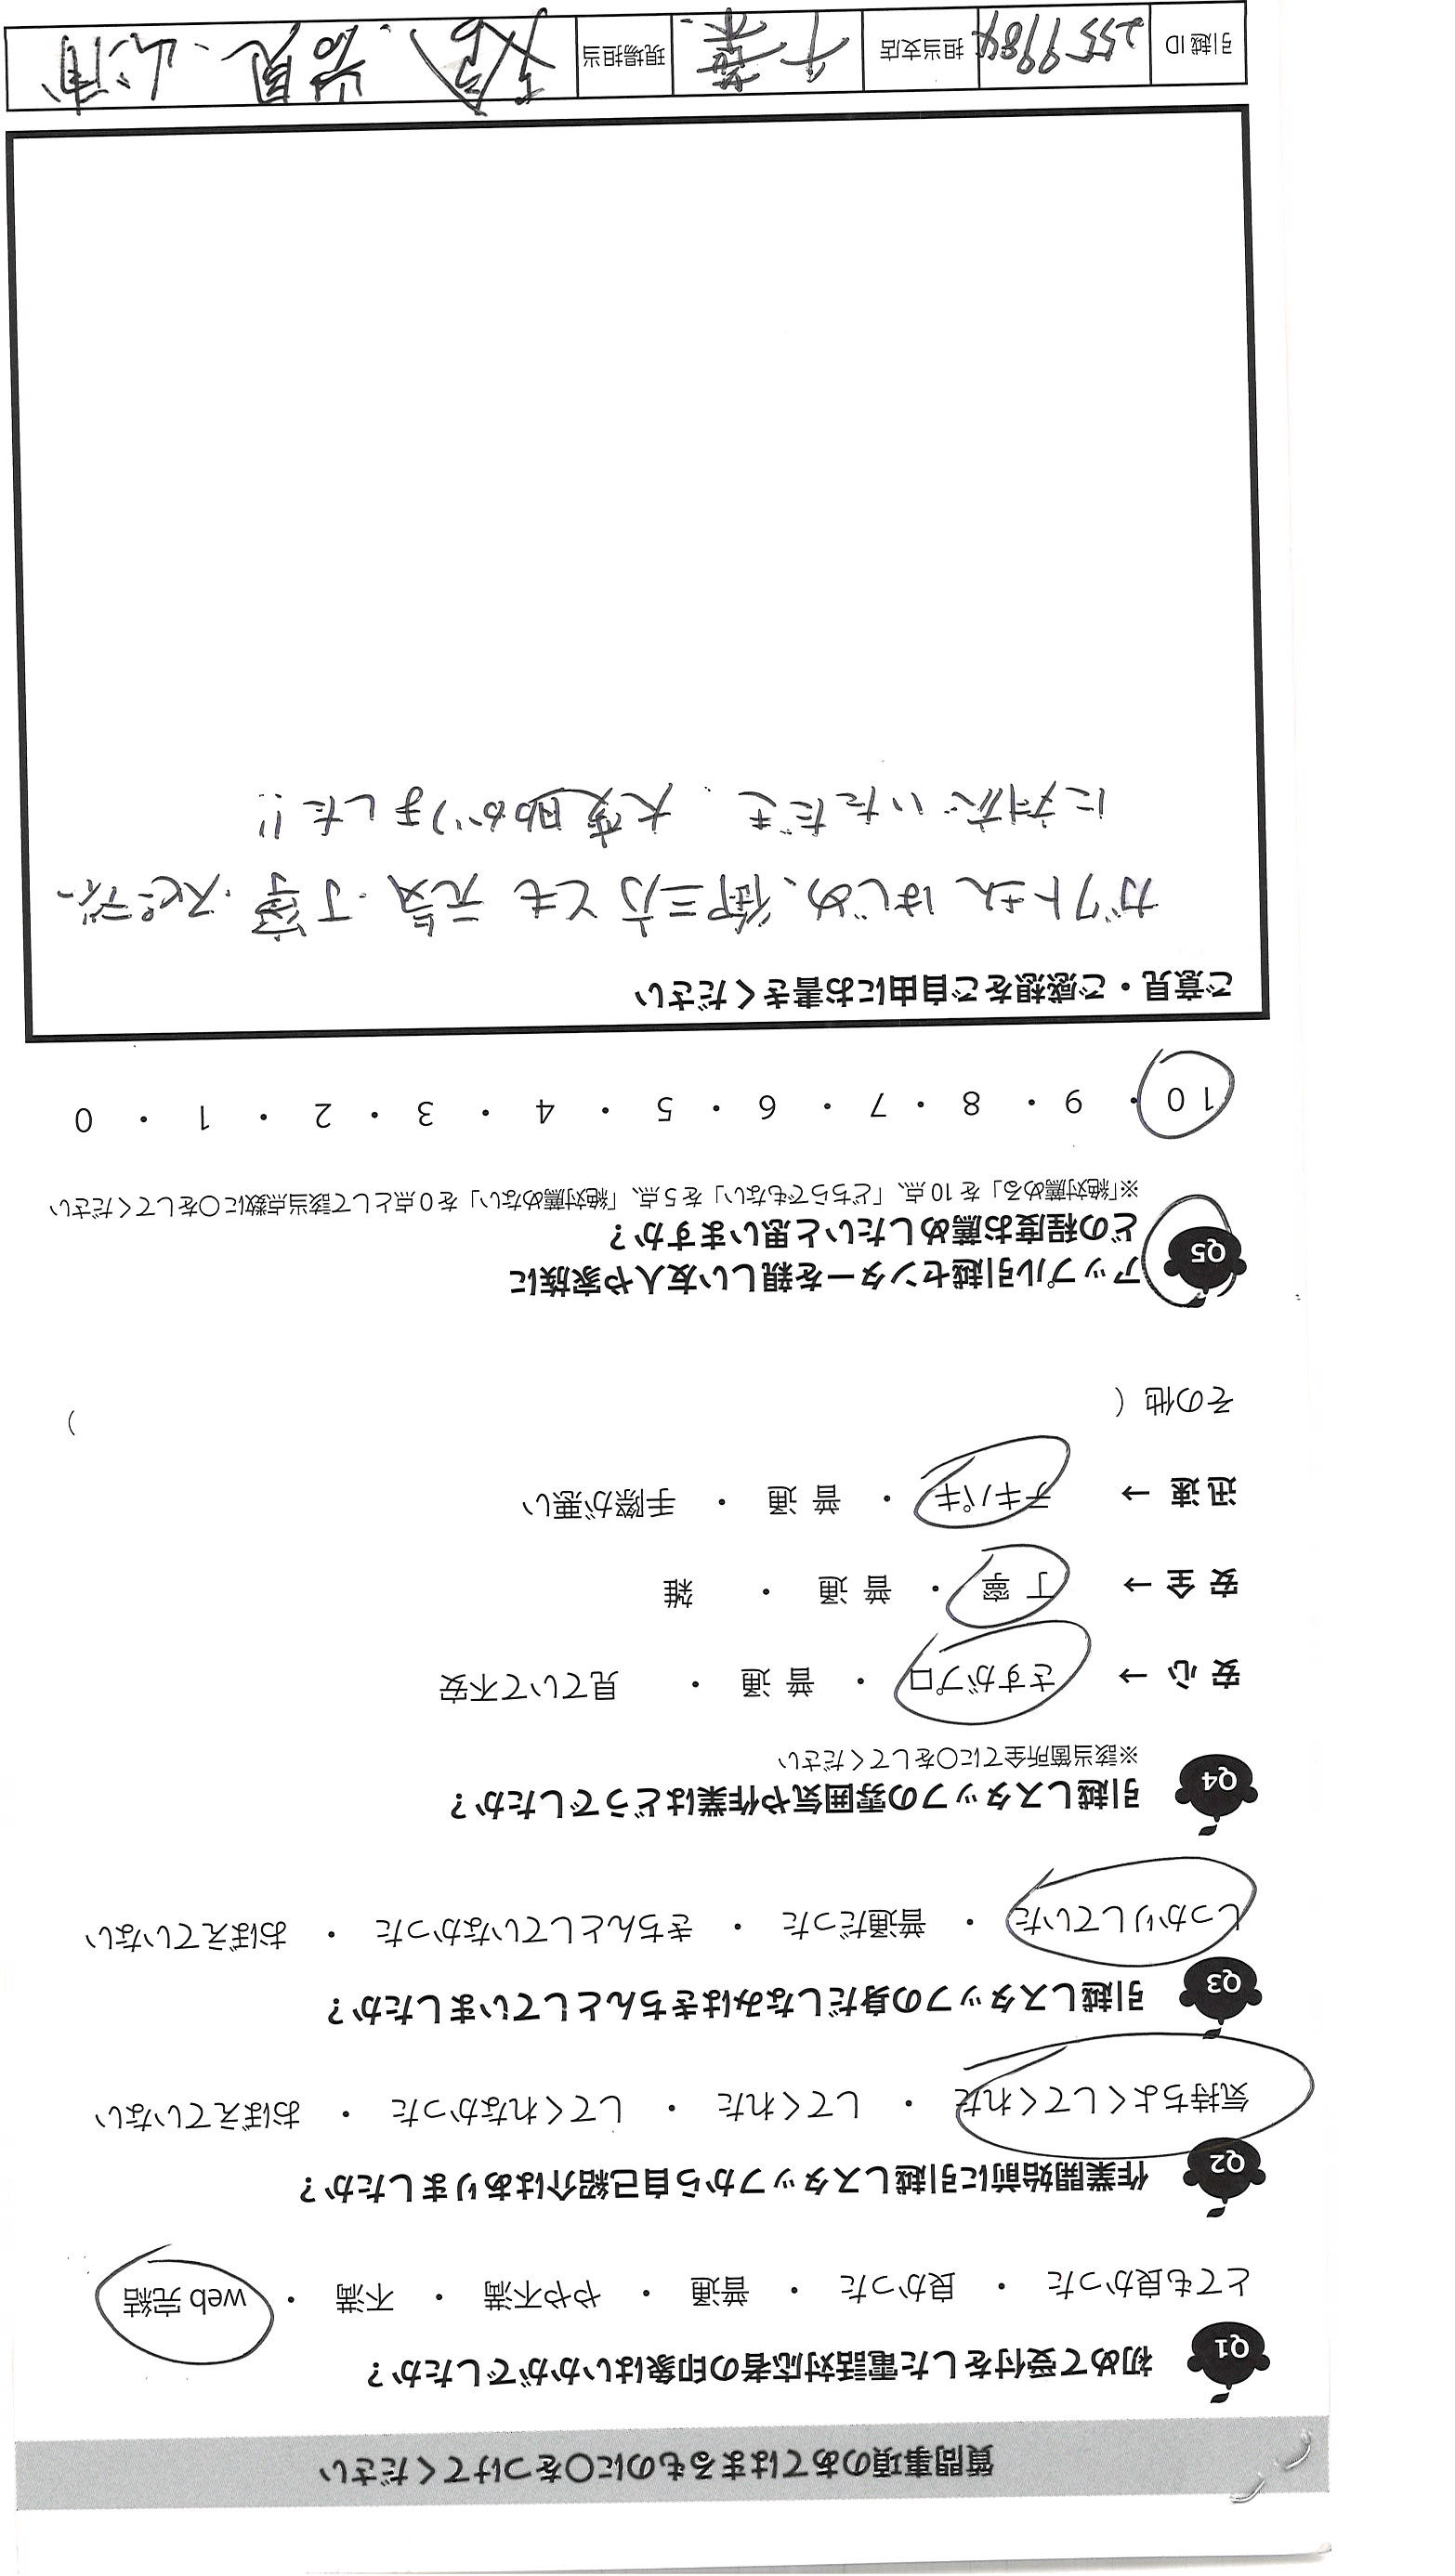 質問事項のあてはまるものに〇をつけてください
Q1 初めて受付をした電話対応者の印象はいかがでしたか？
とても良かった ・ 良かった ・ 普通 ・ やや不満 ・ 不満 ・ web 完結
Q2 作業開始前に引越しスタッフから自己紹介はありましたか？
気持ちよくしてくれた ・ してくれた ・ してくれなかった ・ おぼえていない
Q3 引越しスタッフの身だしなみはきちんとしていましたか？
しっかりしていた ・ 普通だった ・ きちんとしていなかった ・ おぼえていない
Q4 引越しスタッフの雰囲気や作業はどうでしたか？
※該当箇所全てに〇をしてください
安心 → さすがプロ ・ 普通 ・ 見ていて不安
安全 → 丁寧 ・ 普通 ・ 雑
迅速 → テキパキ ・ 普通 ・ 手際が悪い
その他（ ）
Q5 アップル引越センターを親しい友人や家族に
どの程度お薦めしたいと思いますか？
※「絶対薦める」を 10 点、「どちらでもない」を 5 点、「絶対薦めない」を 0 点として該当点数に〇をしてください
10 ・ 9 ・ 8 ・ 7 ・ 6 ・ 5 ・ 4 ・ 3 ・ 2 ・ 1 ・ 0
ご意見・ご感想をご自由にお書きください
ガクトさんはじめ、御三方とも元気・丁寧・スピーディー
に対応いただき、大変助かりました!!
引越 ID 2559984 担当支店 千葉 現場担当